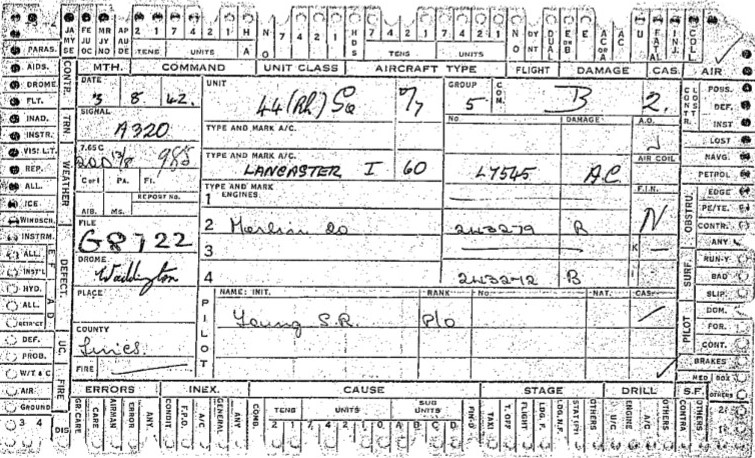 JA FE MR AP 7 4 2 1 7 4 2 1 H N 7 4 2 1 HDS 7 4 2 1 7 4 2 1 N DY DUAL E A AC U FATAL INJ. COLL
MY JU JY AU TENS UNITS A O TENS UNITS O NT
SE OC NO DE
PARAS. MTH. COMMAND UNIT CLASS AIRCRAFT TYPE FLIGHT DAMAGE CAS. AIR
AIDS. CONTR. DATE UNIT GROUP COM. CONTR. LOSTR. POSS.
DROME 3 8 42. 44 (Rh) Sq 5 B 2. DEF.
FLT. SIGNAL INST
INAD. TRN. A320 TYPE AND MARK A/C. No DAMAGE A.O. LOST
INSTR. 7.65C AIR COLL NAVG.
VIS: L.T. WEATHER 985 TYPE AND MARK A/C. PETROL
REP. Cat PA. FI. LANCASTER I 60 L7545 A.C. F.I.N. EDGE
ALL. REPORT No. TYPE AND MARK ENGINES N OBSTRU. PE/TE.
ICE AIB. MS. 1 CONTR.
WINDSCR. FILE 2 Merlin 20 243279 B ANY
INSTRM. G8722 3 K SURF. RUN-Y
ALL. DEFECT. DROME 4 243272 B I BAD
INST'L Waddington SLIP.
HYD. PLACE PILOT NAME: INIT. RANK No NAT. CAS. PILOT DOM.
ALL. Young S.R. P/O FOR.
DEF. UC. COUNTY CONT.
PROB. Lincs. BRAKES
W/T & C FIRE FIRE
AIR ERRORS INEX. CAUSE STAGE DRILL S.F. OTHERS
GROUND GR.CARE CARE AIRMAN ERROR ANY. CONDIT F.P.D. A/C GENERAL ANY COND. TENS UNITS SUB UNITS TAXI T. OFF FLIGHT LDG. F. LDG. N.F. OTHERS U/C ENGINE A/C OTHERS CONTRA OTHERS
3 4 DIS 2 1 7 4 2 1 0 A B C D